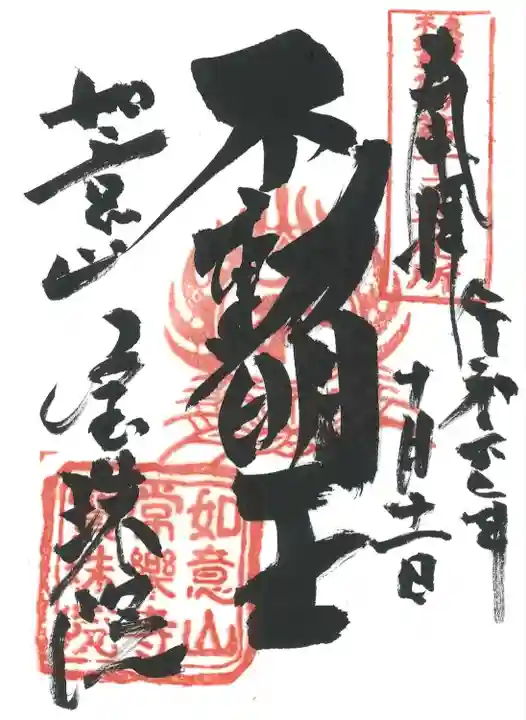 奉拝
令和六年
十月十一日
不動明王
如意山
宝珠院
如意山
常樂寺
宝珠院